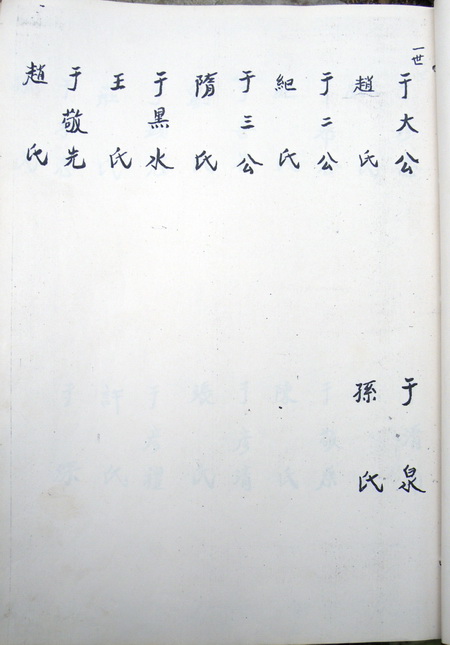 一世
于大公
趙氏
于二公
紀氏
于三公
隋氏
于黑水
王氏
于敬先
趙氏
于泉
孫氏